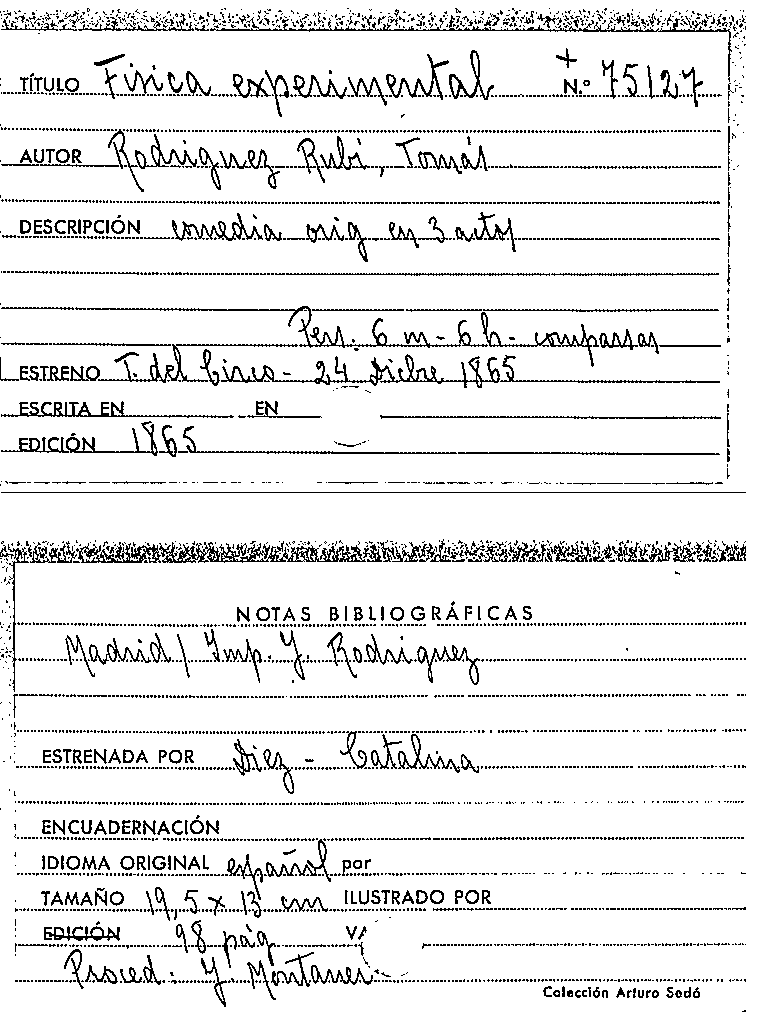 TÍTULO Fisica experimental + N.º 75127
AUTOR Rodriguez Rubí, Tomás
DESCRIPCIÓN comedia orig en 3 actos
Pers: 6 m - 6 h - comparsas
ESTRENO T. del Circo - 24 Dicbre 1865
ESCRITA EN EN
EDICIÓN 1865
NOTAS BIBLIOGRÁFICAS
Madrid / Imp. J. Rodriguez
ESTRENADA POR Diez - Catalina
ENCUADERNACIÓN
IDIOMA ORIGINAL español por
TAMAÑO 19,5 x 13 cm ILUSTRADO POR
EDICIÓN 98 pág
Proced: J. Montaner
Colección Arturo Sedó